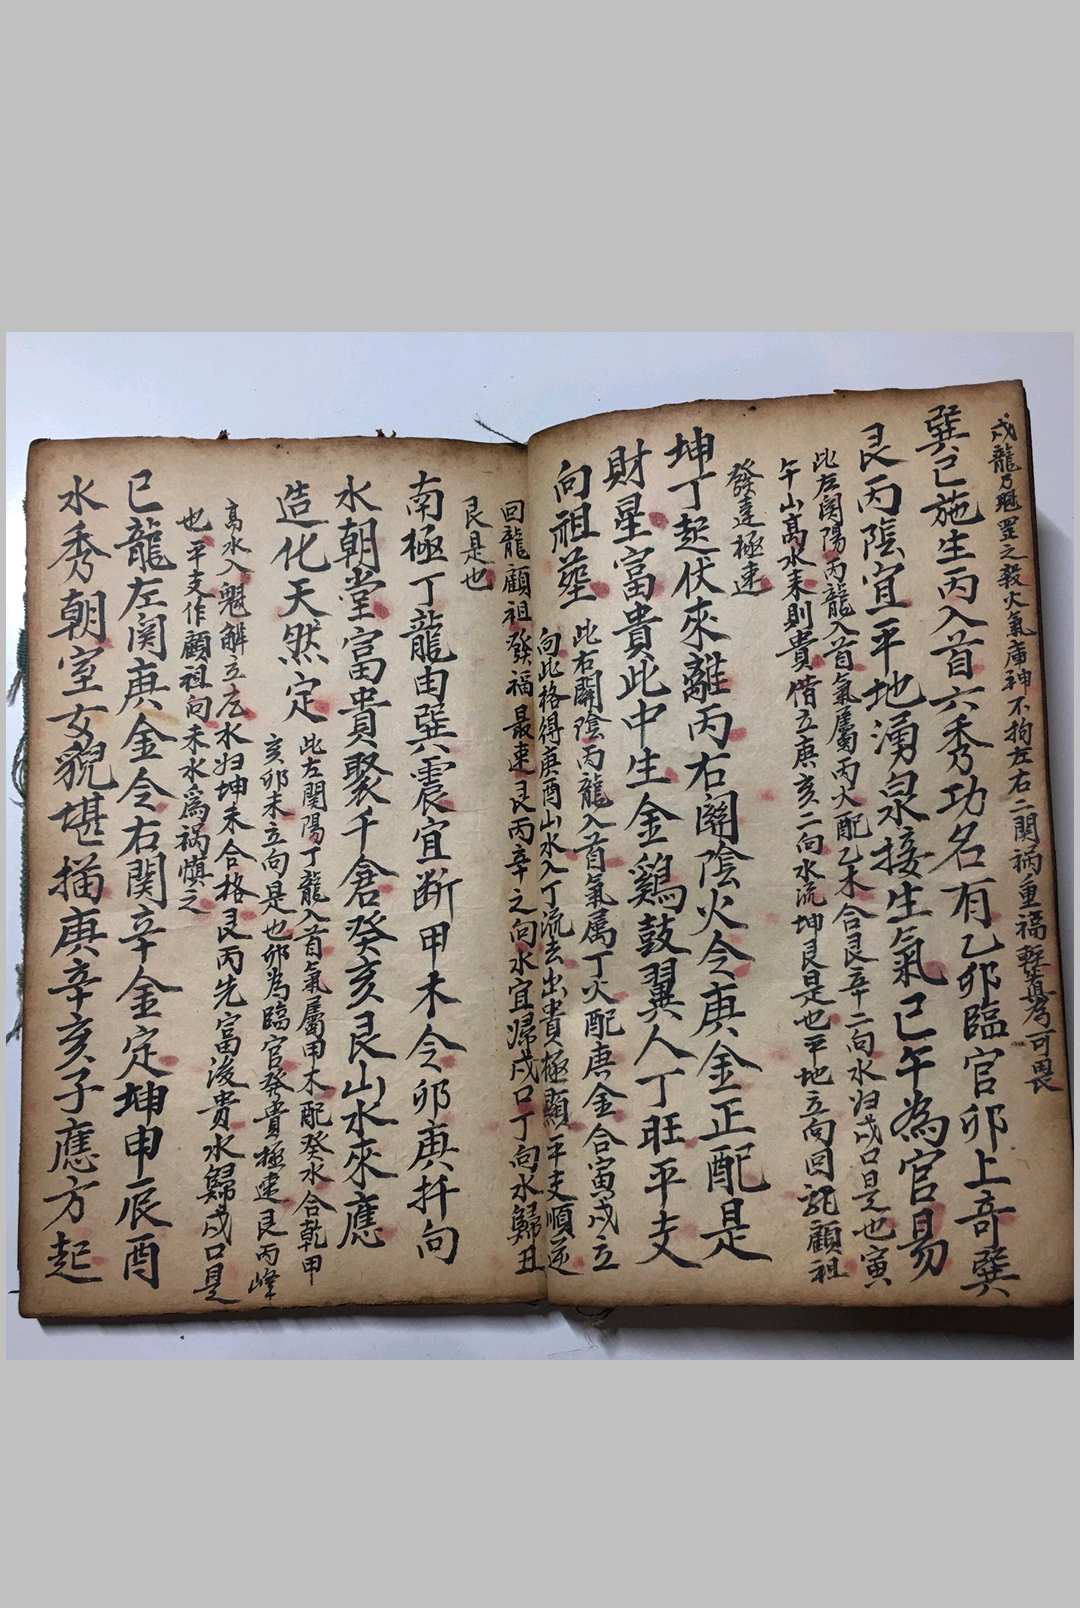 戌龍乃魁罡之殺火氣庫神不拘左右二関禍重福輕真為可畏
巽巳施生丙入首六秀功名有乙卯臨官卯上奇巽
艮丙陰宜平地湧泉接生氣巳午為官易
此左関陽丙龍入首氣屬丙火配乙木合艮辛二向水归戌口是也寅
午山高水來則貴借立庚亥二向水流坤艮是也平地立向回龍顧祖
發達極速
坤丁起伏來離丙右關陰火令庚金正配是
財星富貴此中生金鷄鼓翼人丁旺平支
向祖塋
此右關陰丙龍入首氣属丁火配庚金合寅戌立
向此格得庚酉山水入丁流去出貴極顯平支順逆
回龍顧祖發福最速艮丙辛之向水宜归戌口丁向水歸丑
艮是也
南極丁龍由巽震宜断甲木令卯庚扦向
水朝堂富貴聚千倉癸亥艮山水來應
造化天然定
此左関陽丁龍入首氣屬甲木配癸水合乾甲
亥卯未立向是也卯為臨官發貴極速艮丙峰
高水入魁解立庒水归坤未合格艮丙先富後貴水歸戌口是
也平支作顧祖向未水為祸慎之
巳龍左関庚金令右関辛金定坤申辰酉
水秀朝室女貌堪描庚辛亥子應方起